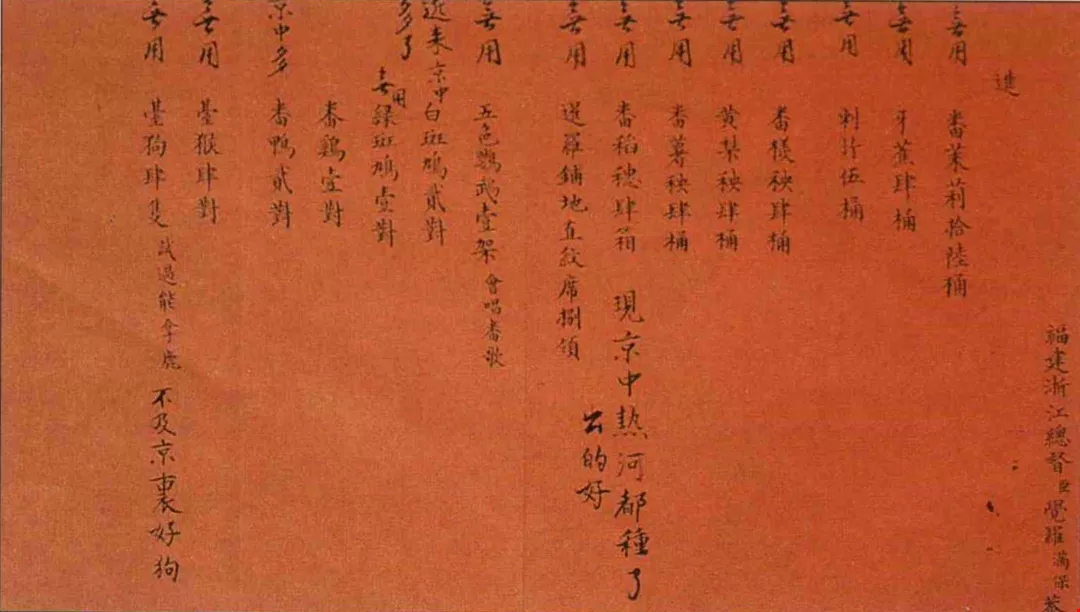 福建浙江總督臣覺羅滿保恭
進
無用 番茉莉拾陸桶
無用 牙蕉肆桶
無用 刺竹伍桶
無用 番檨秧肆桶
無用 黄梨秧肆桶
無用 番薯秧肆桶
無用 番稻穗肆箱 現京中熱河都種了
出的好
無用 暹羅鋪地直紋席捌領
無用 五色鸚鵡壹架 會唱番歌
近來京中 白斑鳩貳對
多了 無用 綠斑鳩壹對
番鷄壹對
京中多 番鴨貳對
無用 臺猴肆對
無用 臺狗肆隻 試過能拿鹿 不及京裏好狗